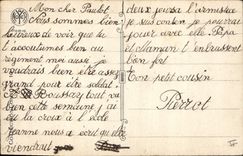 Mon cher Paulot
Nous sommes bien
heureux de voir que tu
t'accoutumes bien au
régiment moi aussi je
voudrais bien être assez
grand pour être soldat.
A Roussay tout va
bien cette semaine j'ai
eu la croix à l'école
Jeanne nous a écrit qu'elle
viendrait
deux jours l'armistice
je suis content je pourrai
jouer avec elle Papa
et Maman t'embrassent
bien fort
Ton petit cousin
Pierrot